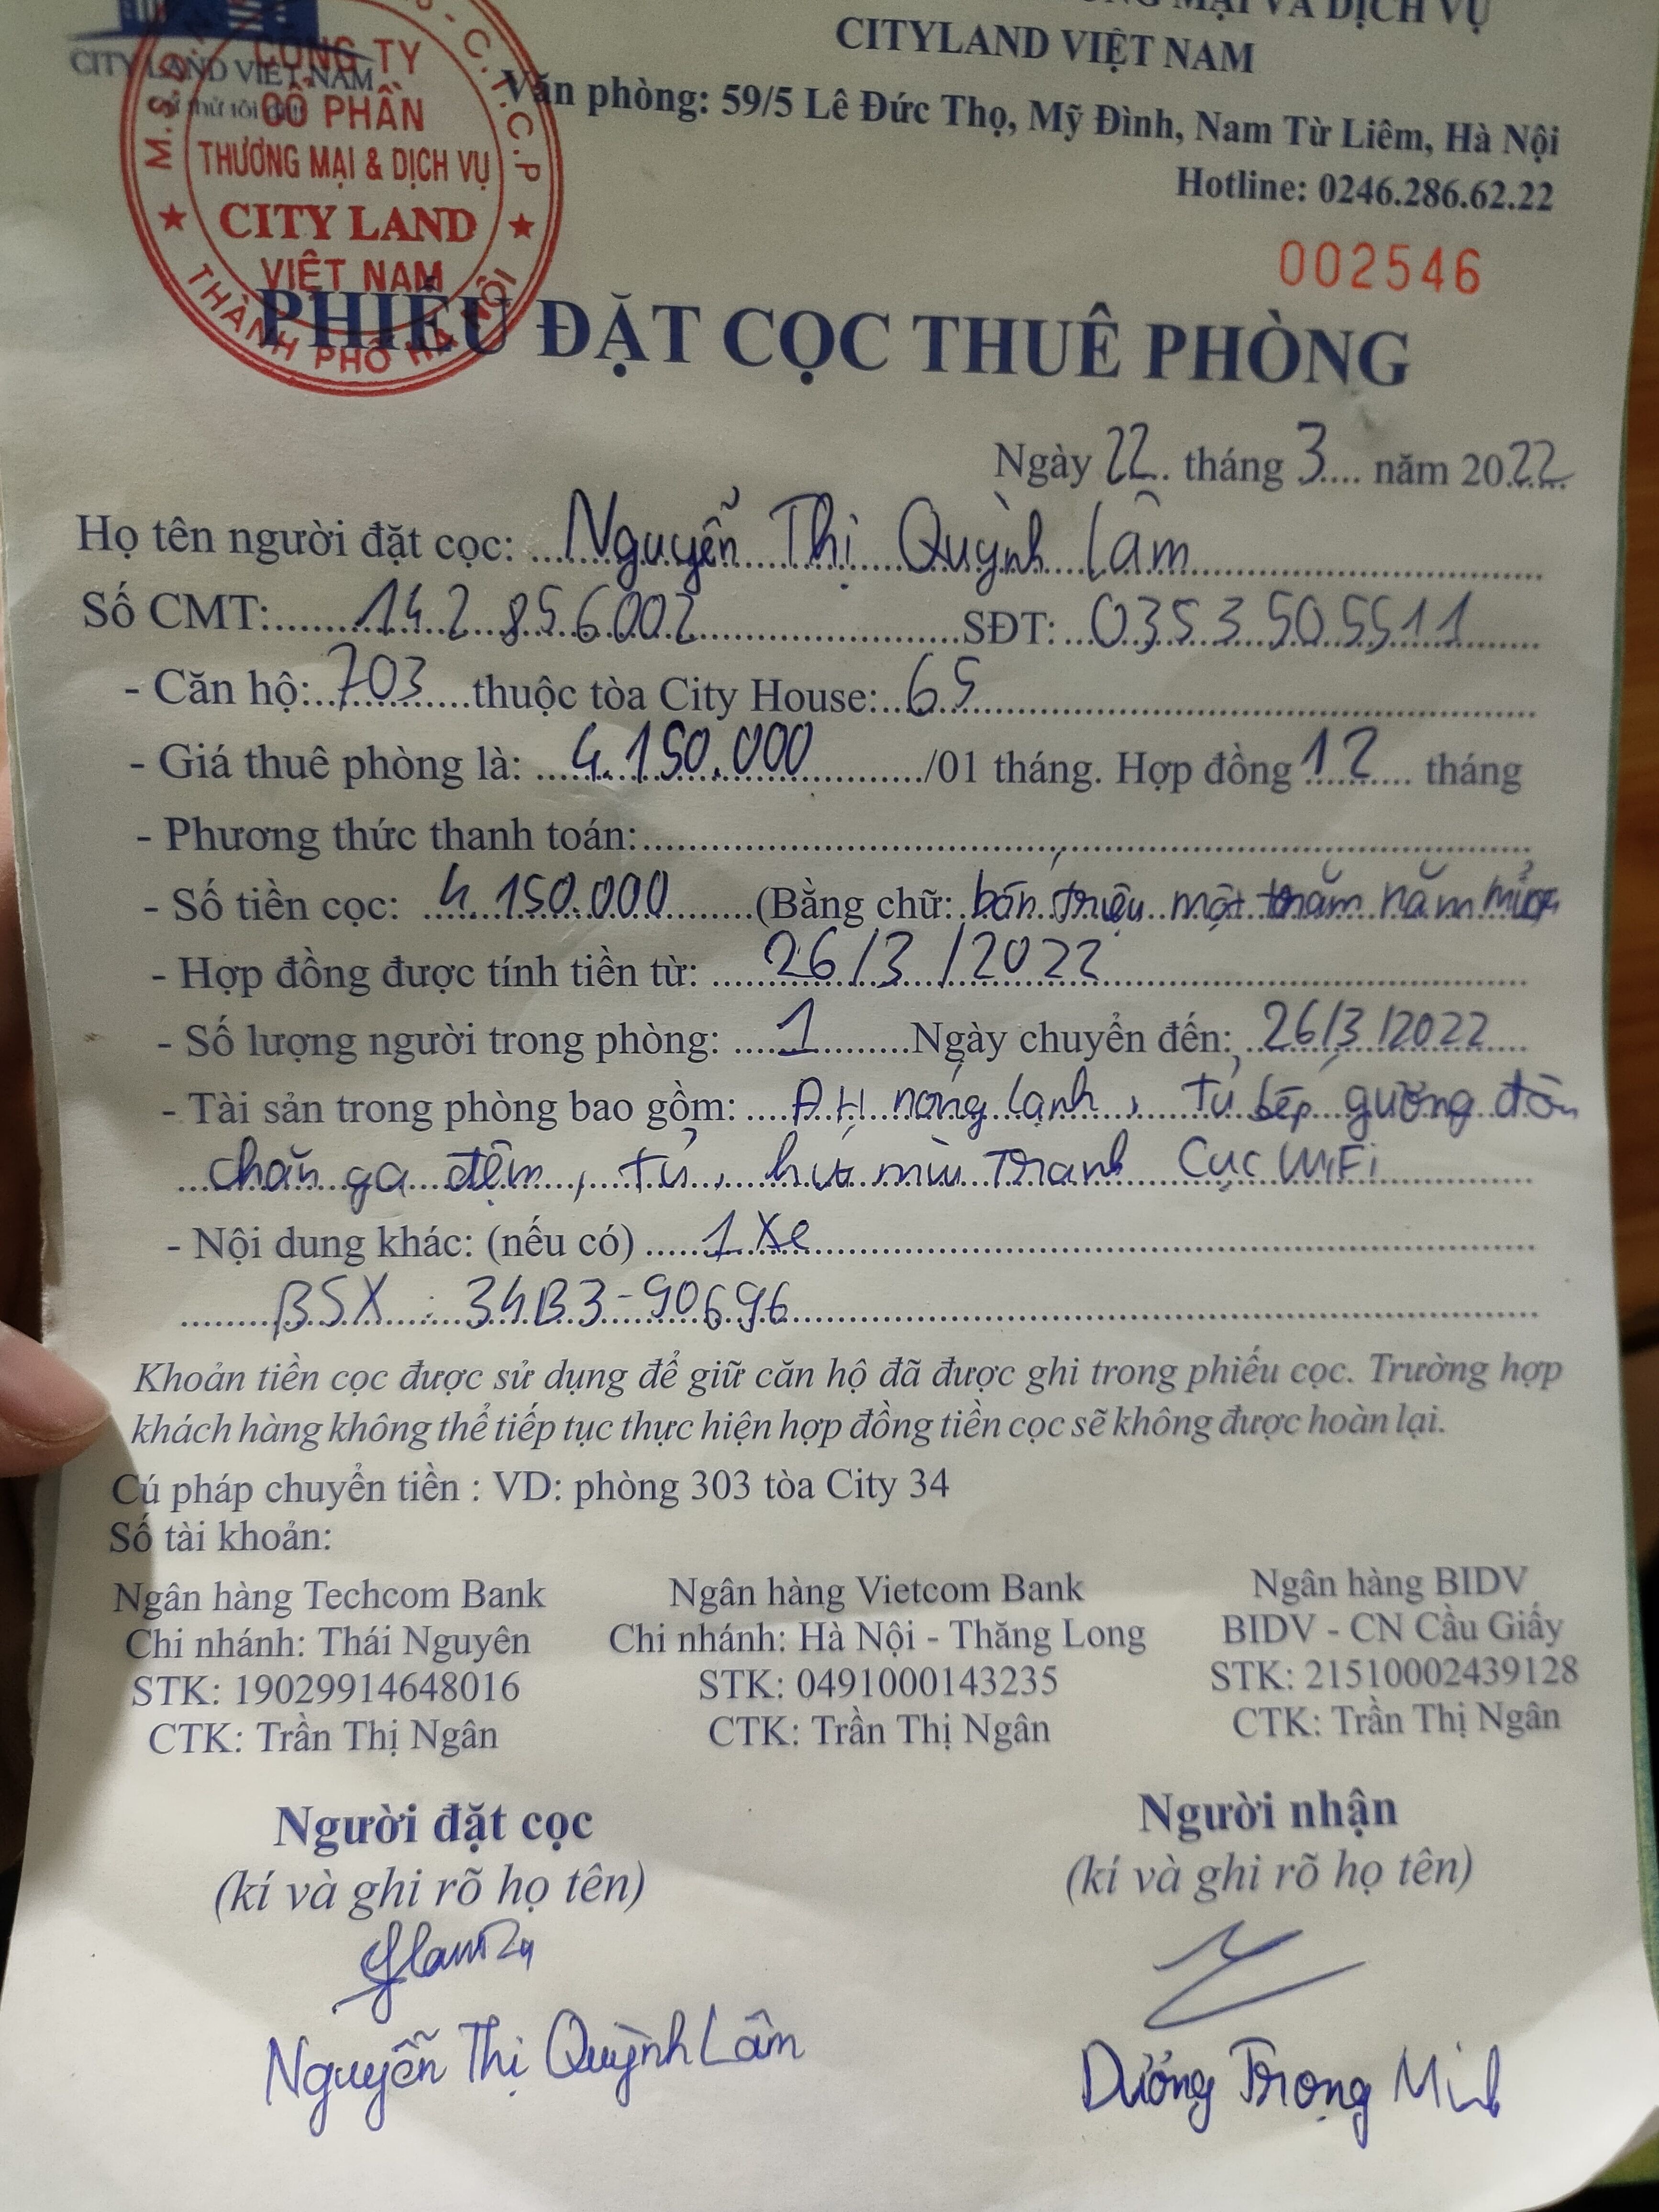 MẠI VÀ DỊCH VỤ
CITYLAND VIỆT NAM
Văn phòng: 59/5 Lê Đức Thọ, Mỹ Đình, Nam Từ Liêm, Hà Nội
Hotline: 0246.286.62.22
CITY LAND VIỆT NAM
M.S. C.T.C.P
CÔNG TY
CỔ PHẦN
THƯƠNG MẠI & DỊCH VỤ
CITY LAND
VIỆT NAM
THÀNH PHỐ HÀ NỘI
002546
PHIẾU ĐẶT CỌC THUÊ PHÒNG
Ngày 22 tháng 3 năm 2022
Họ tên người đặt cọc: Nguyễn Thị Quỳnh Lâm
Số CMT: 142856002 SĐT: 0353505511
- Căn hộ: 703 thuộc tòa City House: 65
- Giá thuê phòng là: 4.150.000 /01 tháng. Hợp đồng 12 tháng
- Phương thức thanh toán:
- Số tiền cọc: 4.150.000 (Bằng chữ: bốn triệu một trăm năm mươi
- Hợp đồng được tính tiền từ: 26/3/2022
- Số lượng người trong phòng: 1 Ngày chuyển đến: 26/3/2022
- Tài sản trong phòng bao gồm: ĐH nóng lạnh, tủ bếp gương đèn
chăn ga đệm, tủ, hút mùi Tranh Cục WiFi
- Nội dung khác: (nếu có) 1 Xe
BSX: 34B3-90696
Khoản tiền cọc được sử dụng để giữ căn hộ đã được ghi trong phiếu cọc. Trường hợp
khách hàng không thể tiếp tục thực hiện hợp đồng tiền cọc sẽ không được hoàn lại.
Cú pháp chuyển tiền : VD: phòng 303 tòa City 34
Số tài khoản:
Ngân hàng Techcom Bank Ngân hàng Vietcom Bank Ngân hàng BIDV
Chi nhánh: Thái Nguyên Chi nhánh: Hà Nội - Thăng Long BIDV - CN Cầu Giấy
STK: 19029914648016 STK: 0491000143235 STK: 21510002439128
CTK: Trần Thị Ngân CTK: Trần Thị Ngân CTK: Trần Thị Ngân
Người đặt cọc Người nhận
(kí và ghi rõ họ tên) (kí và ghi rõ họ tên)
Nguyễn Thị Quỳnh Lâm Dương Trọng Minh